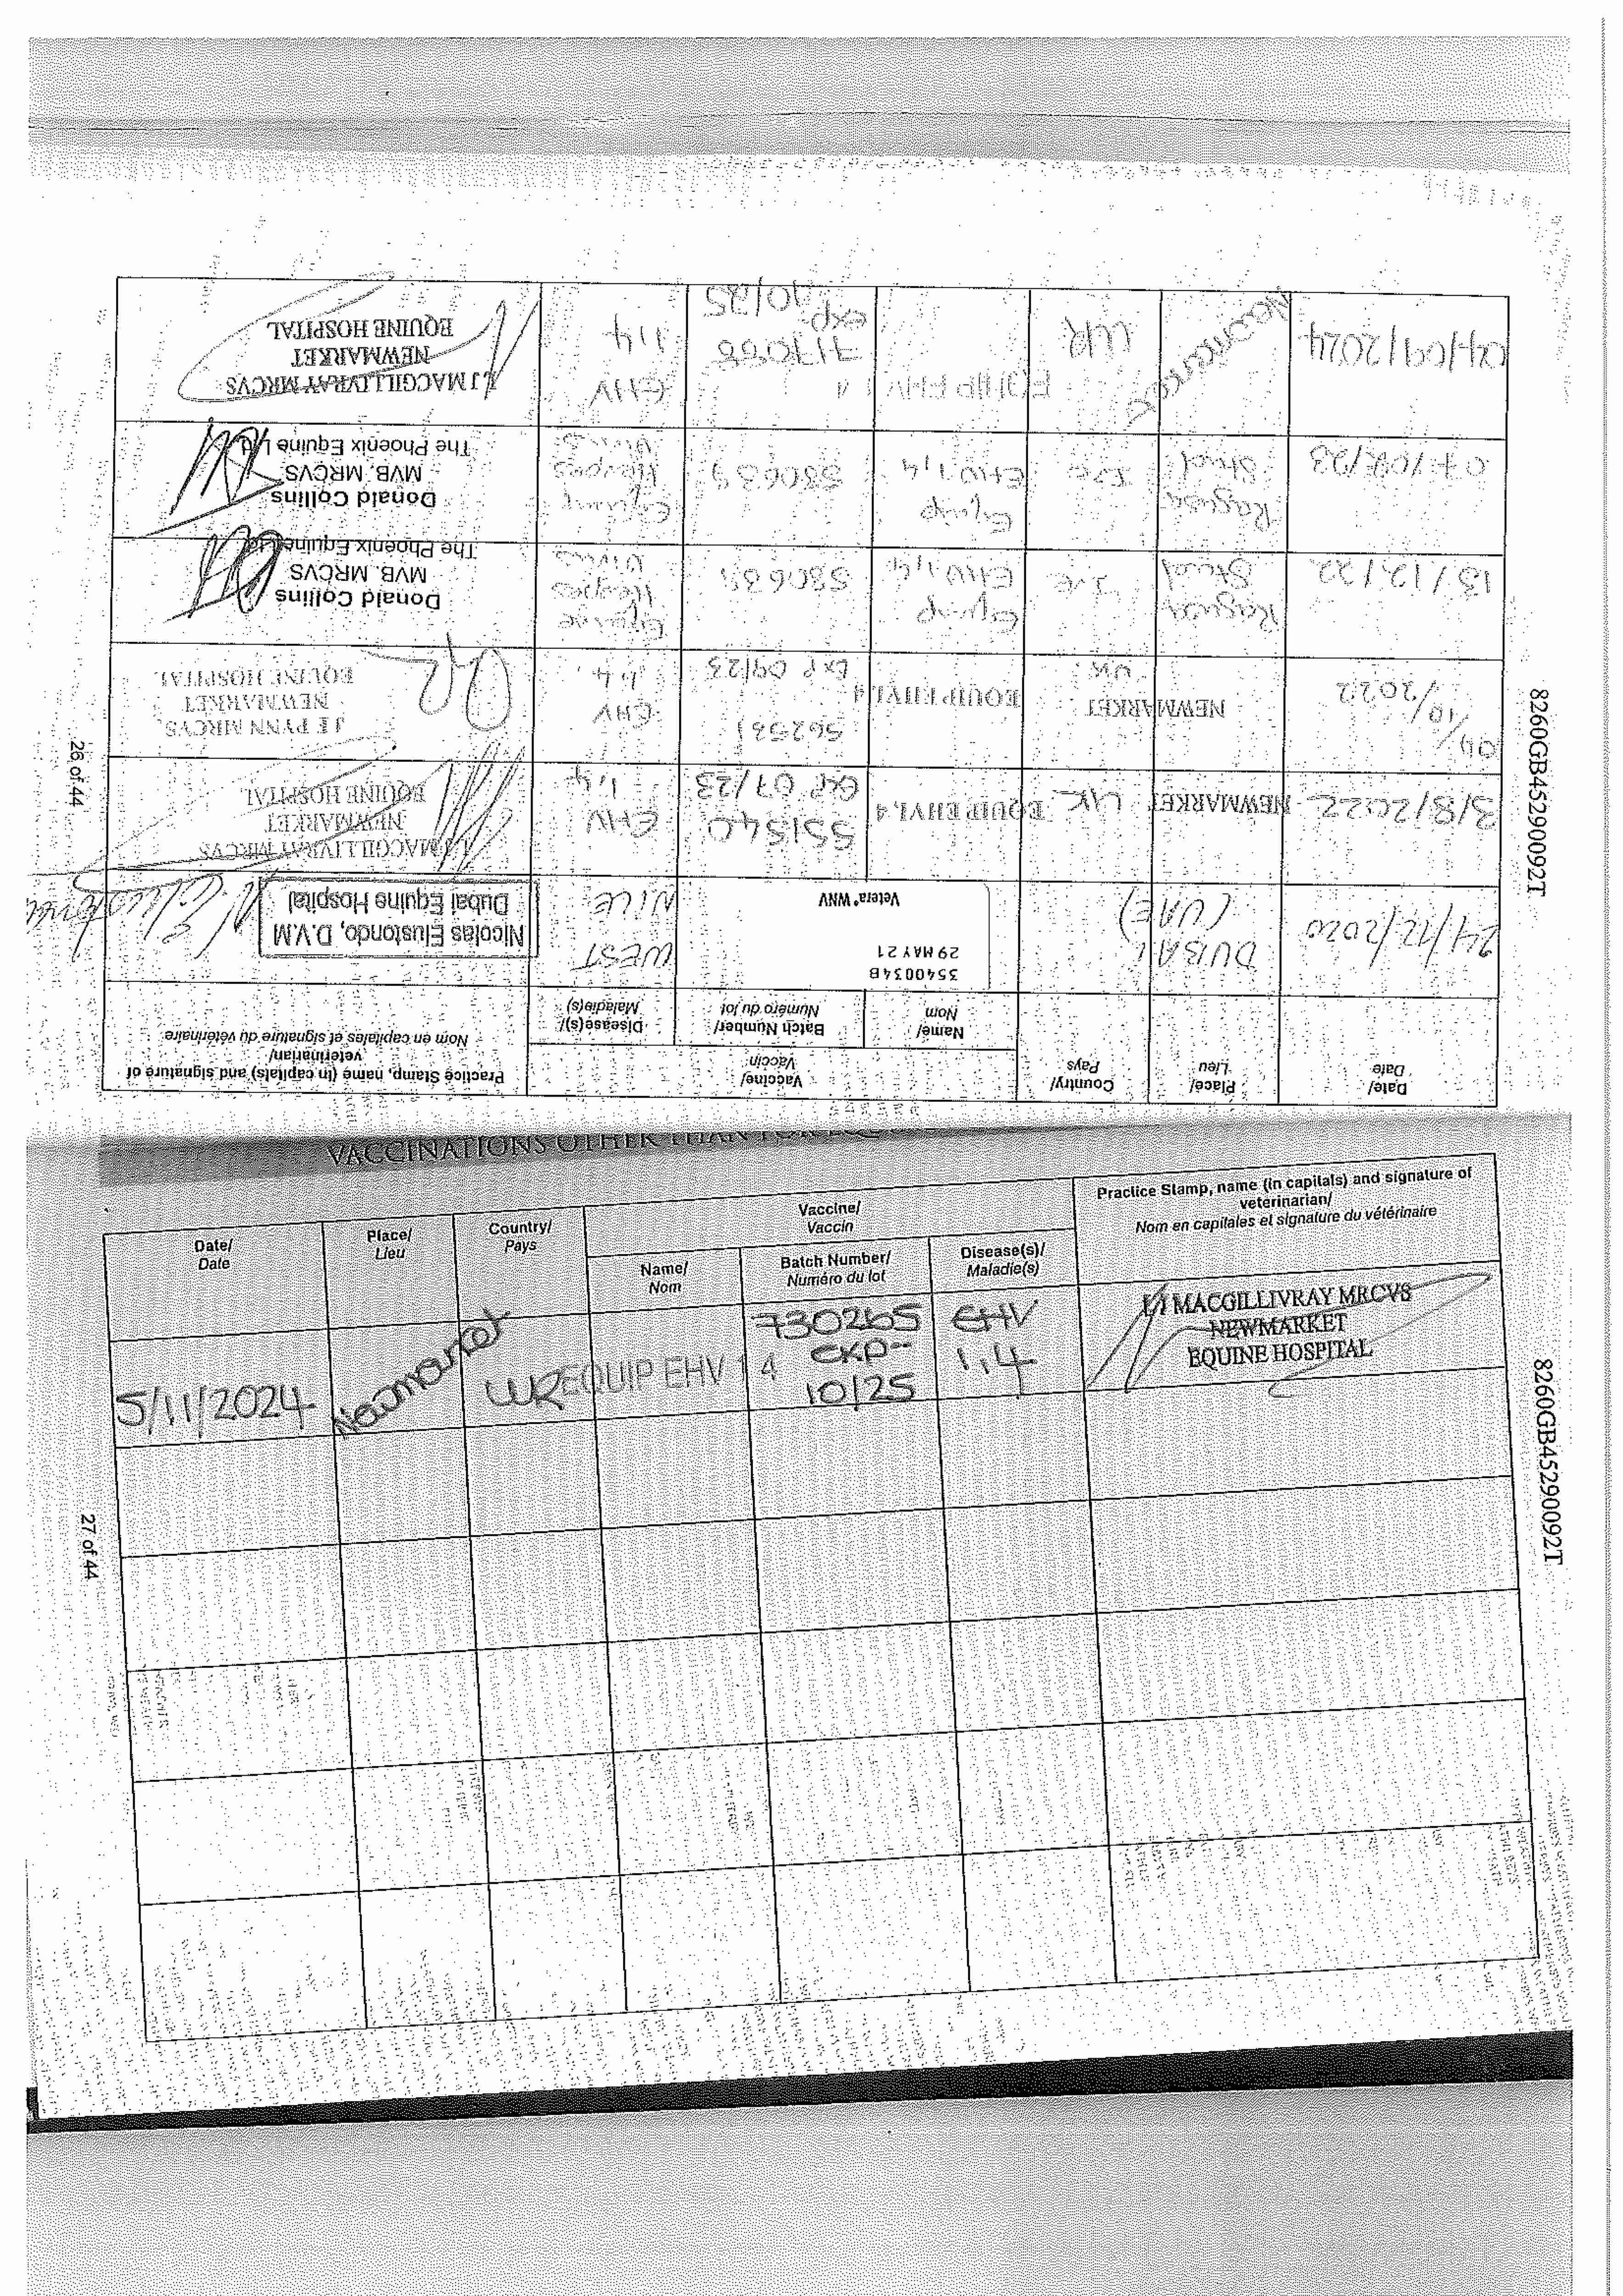 Date/
Date
Place/
Lieu
Country/
Pays
Vaccine/
Vaccin
Name/
Nom
Batch Number/
Numéro du lot
Disease(s)/
Maladie(s)
Practice Stamp, name (in capitals) and signature of
veterinarian/
Nom en capitales et signature du vétérinaire
24/12/2020
DUBAI
(UAE)
3540034B
29 MAY 21
Vetera® WNV
WEST
NILE
Nicolas Elustondo, D.V.M
Dubai Equine Hospital
3/8/2022
NEWMARKET
UK
EQUIP EHV1,4
551540
EXP 07/23
EHV
1,4
MACGILLIVRAY MRCVS
NEWMARKET
EQUINE HOSPITAL
04/
10/
2022
NEWMARKET
UK
EQUIP EHV1,4
562531
EXP 09/23
EHV
1,4
J E PYNN MRCVS
NEWMARKET
EQUINE HOSPITAL
13/12/22
Stud
Equip
EHV 1,4
580639
Equine
Herpes
Virus
Donald Collins
MVB. MRCVS
The Phoenix Equine
Stud
Equip
EHV 1,4
580639
Herpes
Virus
Donald Collins
MVB. MRCVS
The Phoenix Equine
04/09/2024
Newmarket
UK
EQUIP EHV 1 4
exp-
10/25
EHV
1,4
MACGILLIVRAY MRCVS
NEWMARKET
EQUINE HOSPITAL
8260GB45290092T
26 of 44
VACCINATIONS OTHER THAN FOR
Date/
Date
Place/
Lieu
Country/
Pays
Vaccine/
Vaccin
Name/
Nom
Batch Number/
Numéro du lot
Disease(s)/
Maladie(s)
Practice Stamp, name (in capitals) and signature of
veterinarian/
Nom en capitales et signature du vétérinaire
5/11/2024
Newmarket
UK
EQUIP EHV 1 4
730265
EXP-
10/25
EHV
1,4
MACGILLIVRAY MRCVS
NEWMARKET
EQUINE HOSPITAL
8260GB45290092T
27 of 44